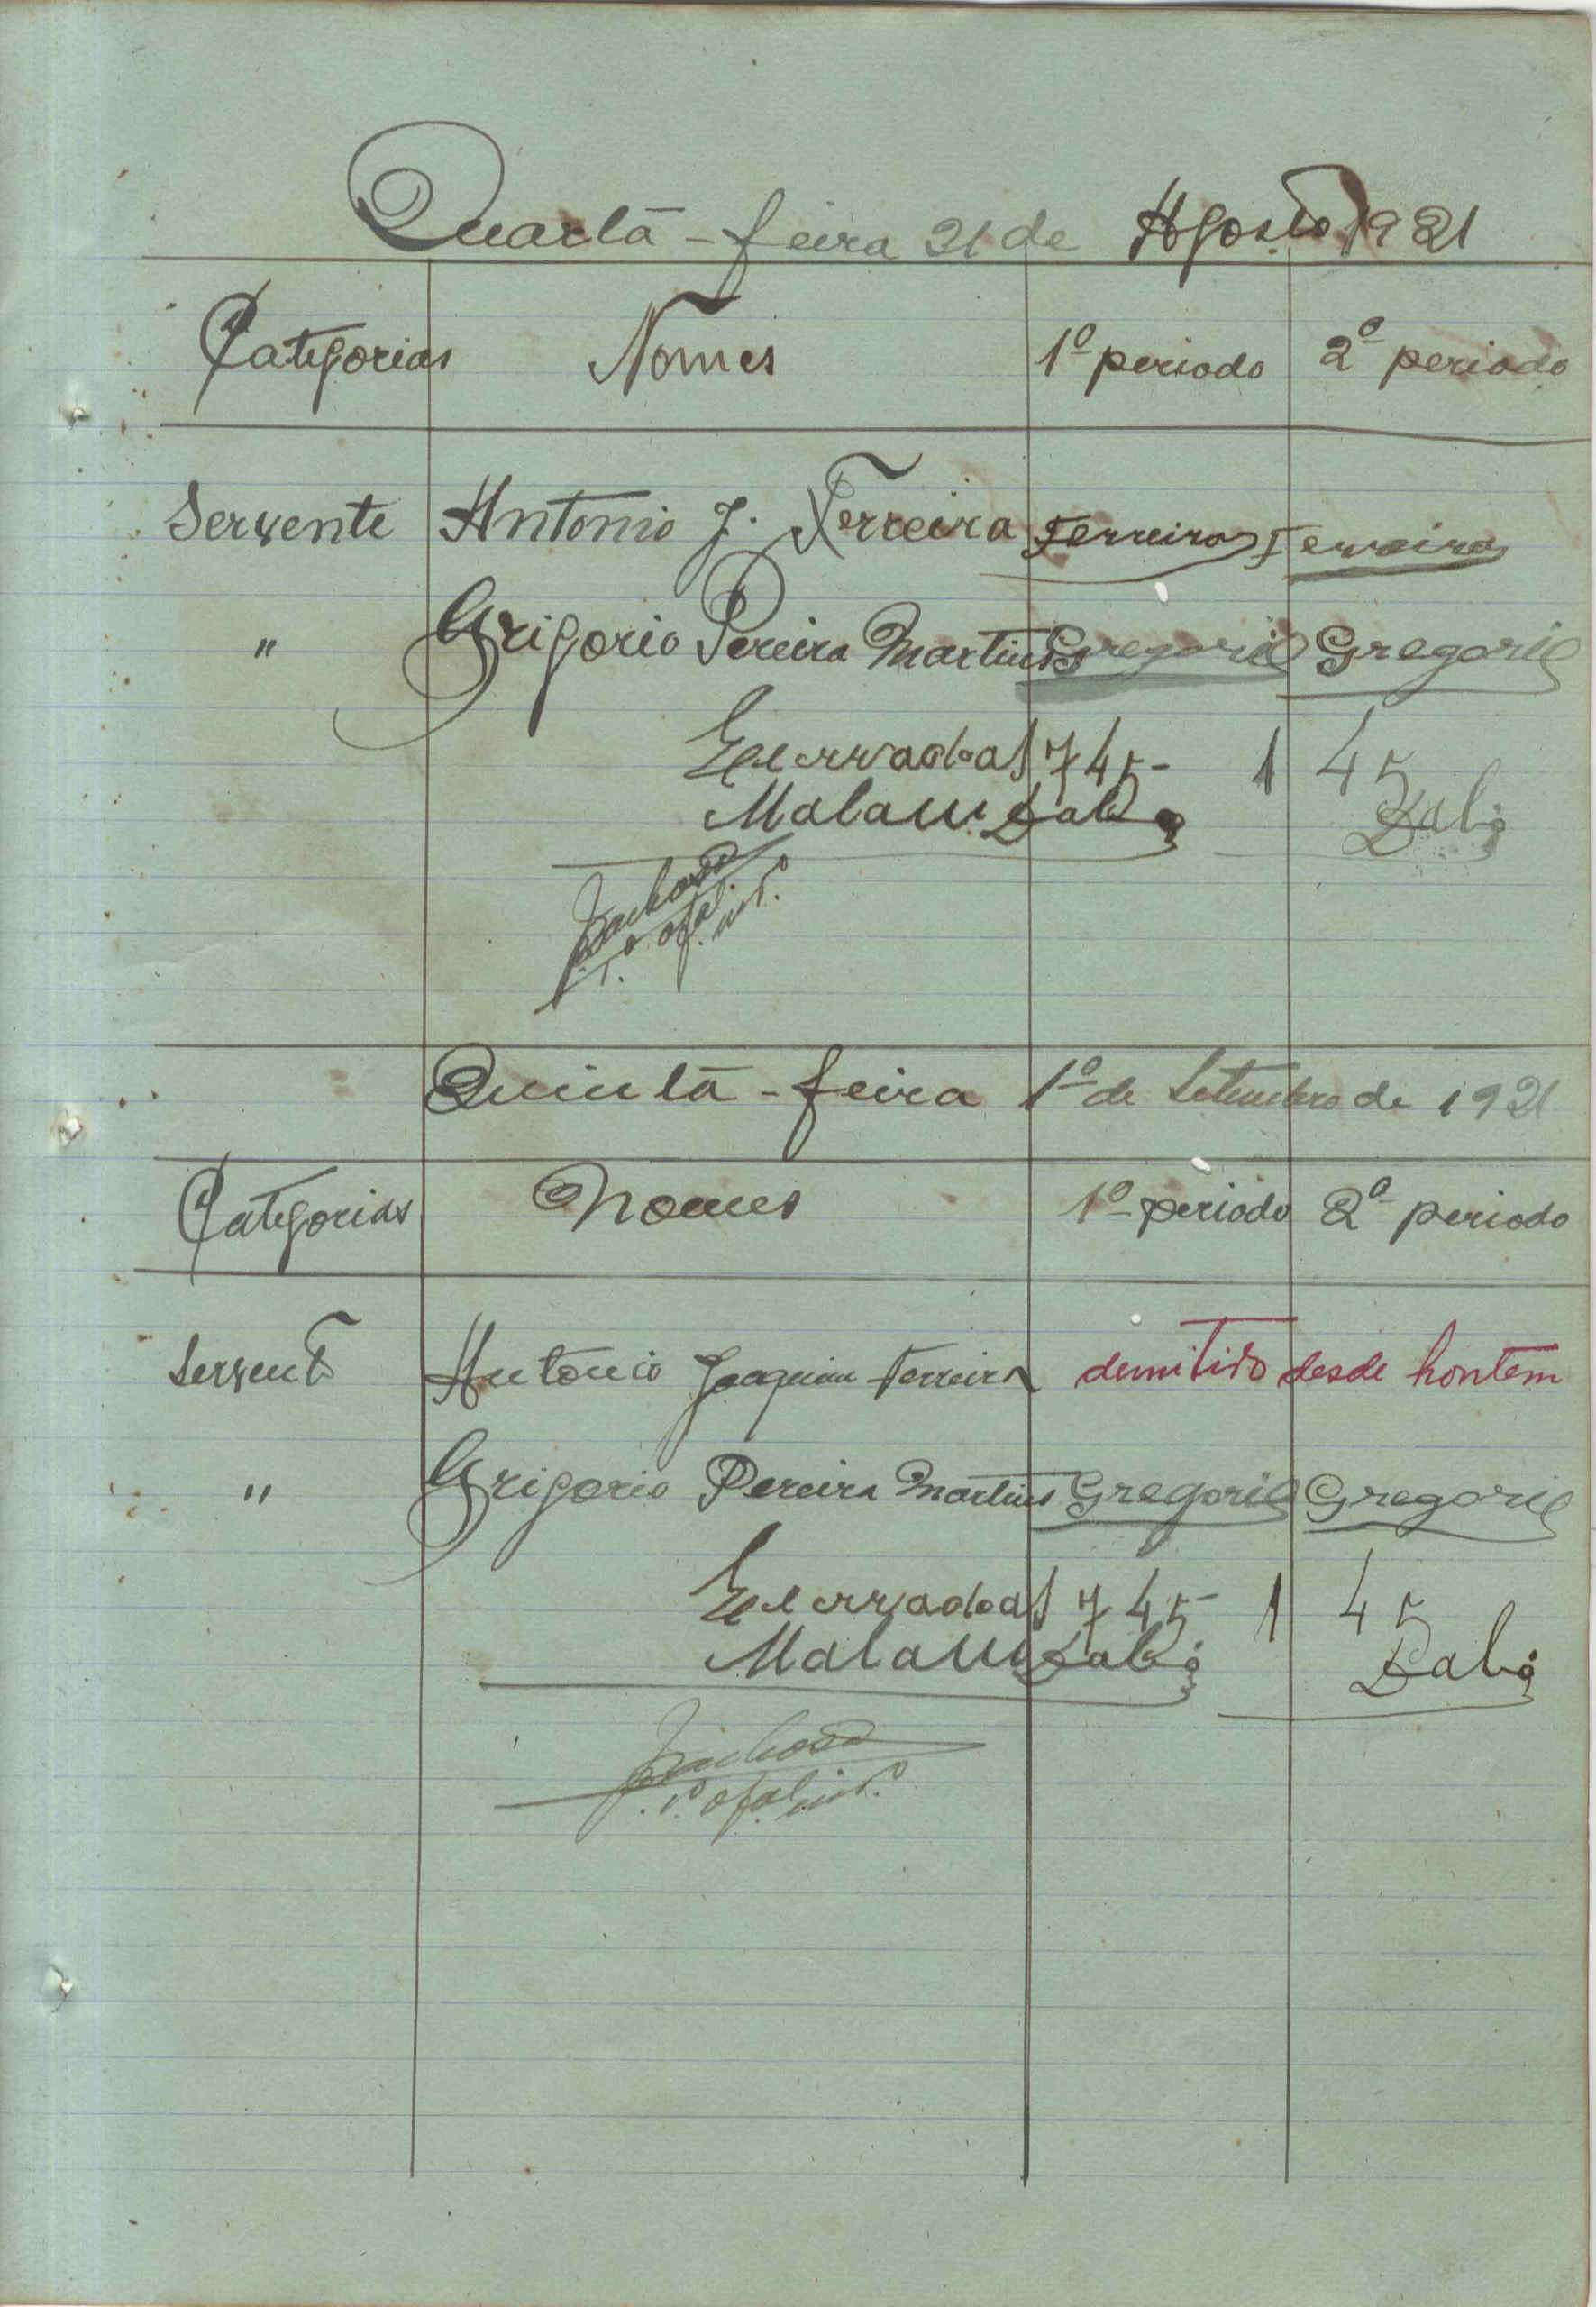 Quarta-feira 31 de Agosto 1921
Categorias Nomes 1º periodo 2º periodo
Servente Antonio J. Ferreira Ferreira Ferreira
" Grigorio Pereira Martins Gregorio Gregorio
Encerrado as 7 45 1 45
Malam Dabó Dabó
Barbosa
1º ofal. intº.
Quinta-feira 1º de Setembro de 1921
Categorias Nomes 1º periodo 2º periodo
Servente António Joaquim Ferreira demitido desde hontem
" Grigorio Pereira Martins Gregorio Gregorio
Encerrado as 7 45 1 45
Malam Dabó Dabó
Barbosa
1º ofal intº.